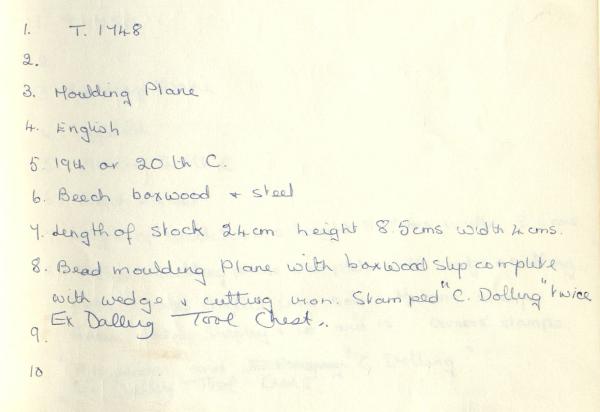 1. T. 1748
2.
3. Moulding Plane
4. English
5. 19th or 20th C.
6. Beech boxwood + steel
7. Length of stock 24cm height 8.5cms width 4cms.
8. Bead moulding Plane with boxwood slip complete
with wedge & cutting iron. Stamped "C. Dolling" twice
Ex Dalling Tool Chest.
9.
10